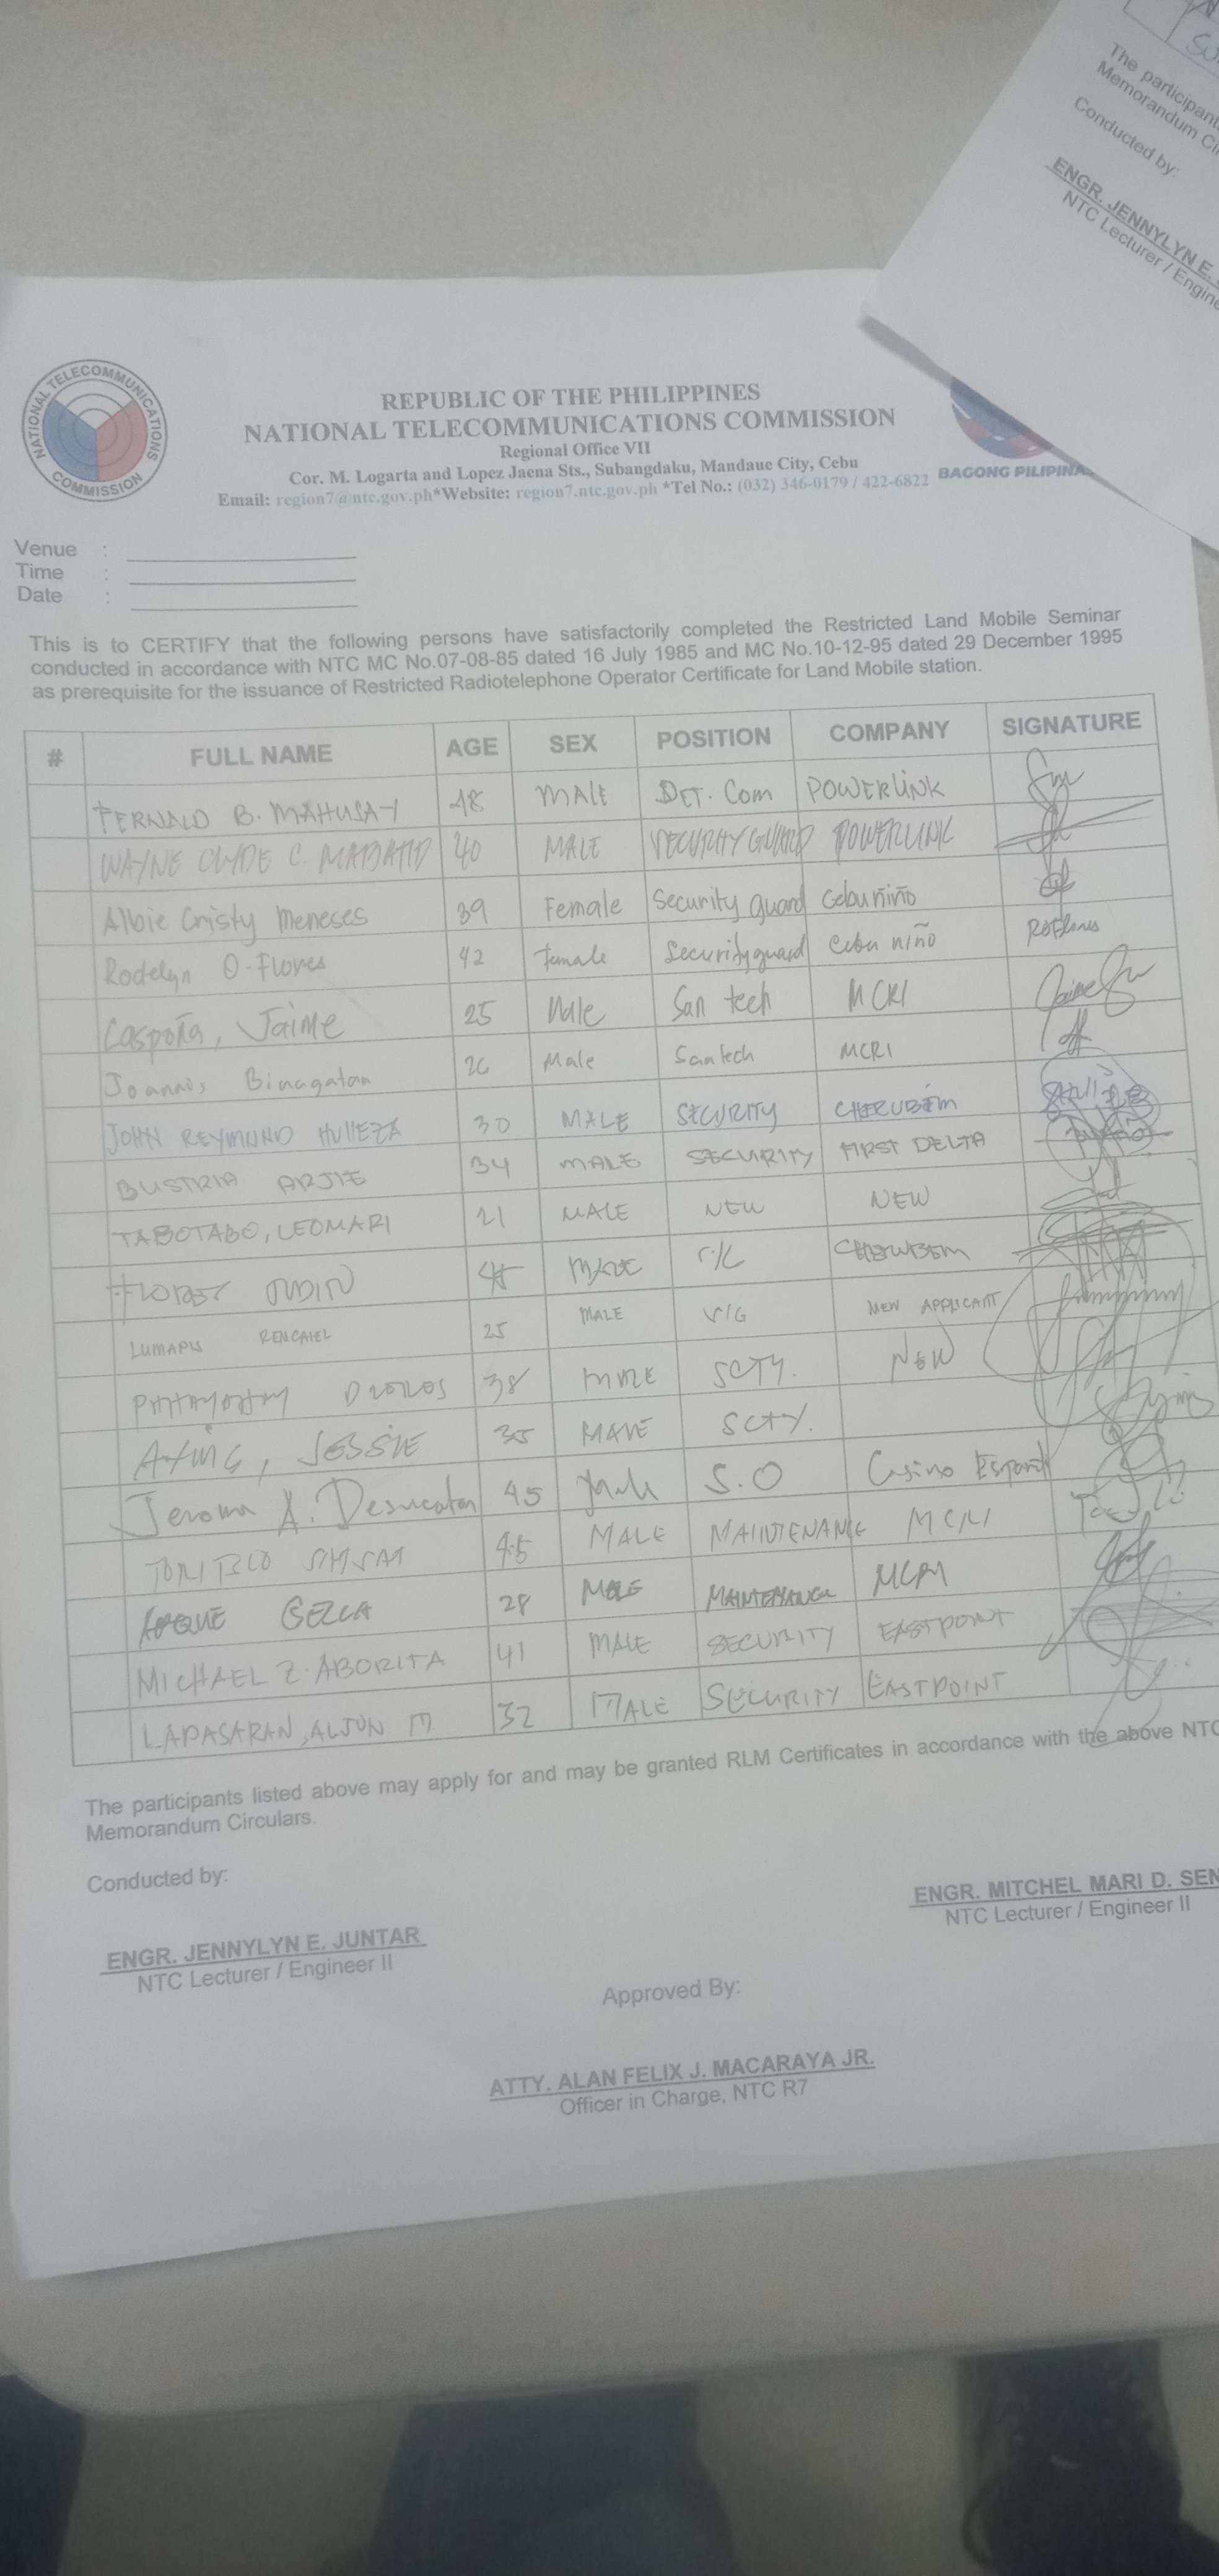 SU
The participant
Memorandum Ci
Conducted by:
ENGR. JENNYLYN E.
NTC Lecturer / Engine
NATIONAL TELECOMMUNICATIONS COMMISSION
REPUBLIC OF THE PHILIPPINES
NATIONAL TELECOMMUNICATIONS COMMISSION
Regional Office VII
Cor. M. Logarta and Lopez Jaena Sts., Subangdaku, Mandaue City, Cebu
Email: region7@ntc.gov.ph*Website: region7.ntc.gov.ph *Tel No.: (032) 346-0179 / 422-6822
BAGONG PILIPINA
Venue :
Time :
Date :
This is to CERTIFY that the following persons have satisfactorily completed the Restricted Land Mobile Seminar
conducted in accordance with NTC MC No.07-08-85 dated 16 July 1985 and MC No.10-12-95 dated 29 December 1995
as prerequisite for the issuance of Restricted Radiotelephone Operator Certificate for Land Mobile station.
# FULL NAME AGE SEX POSITION COMPANY SIGNATURE
B. MAHUSAY 48 MALE DET. Com POWERLINK
WAYNE CLYDE C. 40 MALE SECURITY GUARD POWERLINK
Albie Cristy Meneses 39 Female Security guard Cebu niño
Rodelyn O. Flores 42 Female Security guard Cebu niño
Caspoña, Jaime 25 Male San tech MCRI
Joannis Binagatan 26 Male San tech MCRI
JOHN REYMUND 30 MALE SECURITY CHERUBIM
BUSTRIA ARJIE 34 MALE SECURITY FIRST DELTA
TABOTABO, LEOMARI 21 MALE NEW NEW
MALE
LUMAPIS 25 MALE NEW APPLICANT
38 MALE SCTY. NEW
AYING, JESSIE 35 MALE SCTY.
Jerome A. Desucatan 45 Male S.O Casino Español
45 MALE MAINTENANCE MCRI
28 MALE MAINTENANCE MCRI
MICHAEL Z. ABORITA 41 MALE SECURITY EASTPOINT
LAPASARAN, ALJUN M 32 MALE SECURITY EASTPOINT
The participants listed above may apply for and may be granted RLM Certificates in accordance with the above NTC
Memorandum Circulars.
Conducted by:
ENGR. JENNYLYN E. JUNTAR
NTC Lecturer / Engineer II
ENGR. MITCHEL MARI D. SEN
NTC Lecturer / Engineer II
Approved By:
ATTY. ALAN FELIX J. MACARAYA JR.
Officer in Charge, NTC R7